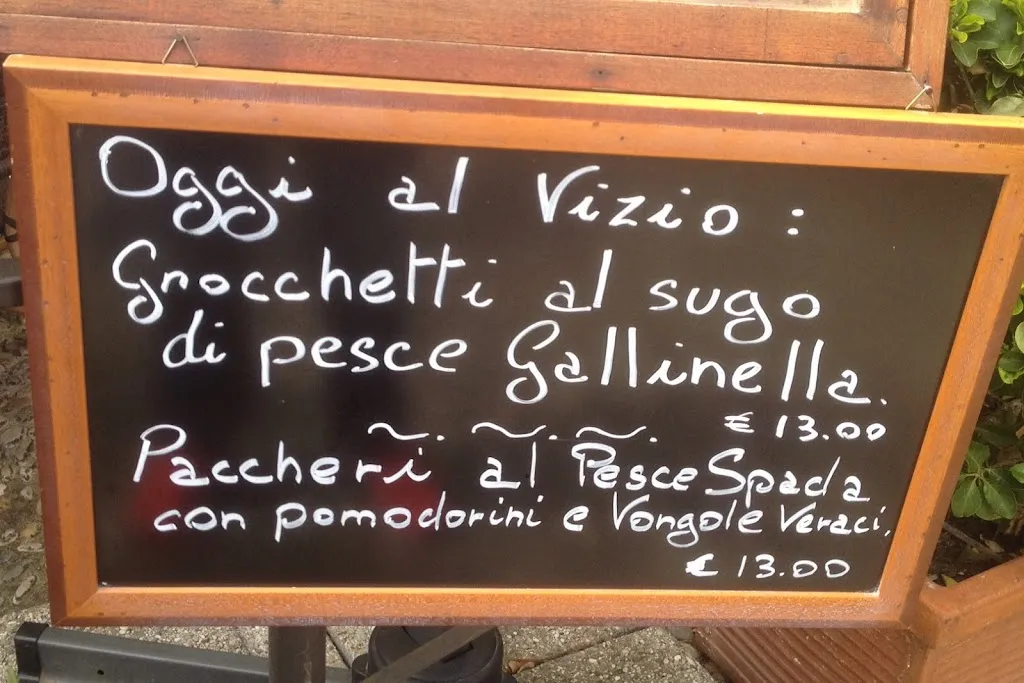 Oggi al Vizio :
Gnocchetti al sugo
di pesce Gallinella.
€ 13.00
~. ~. ~.
Paccheri al Pesce Spada
con pomodorini e Vongole Veraci.
€ 13.00